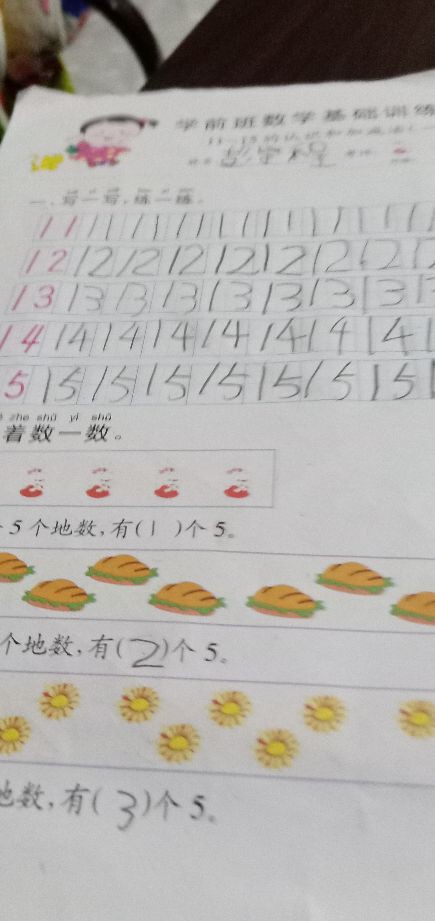 学前班数学基础训练
11-15的认识和加减法(一
一、写一写，练一练。
11 11 11 11 11 11 11 11
12 12 12 12 12 12 12 12 12
13 13 13 13 13 13 13 13 1
14 14 14 14 14 14 14 14 1
5 15 15 15 15 15 15 15 1
zhe shǔ yi shǔ
着数一数。
5个地数，有(1)个5。
个地数，有(2)个5。
地数，有(3)个5。